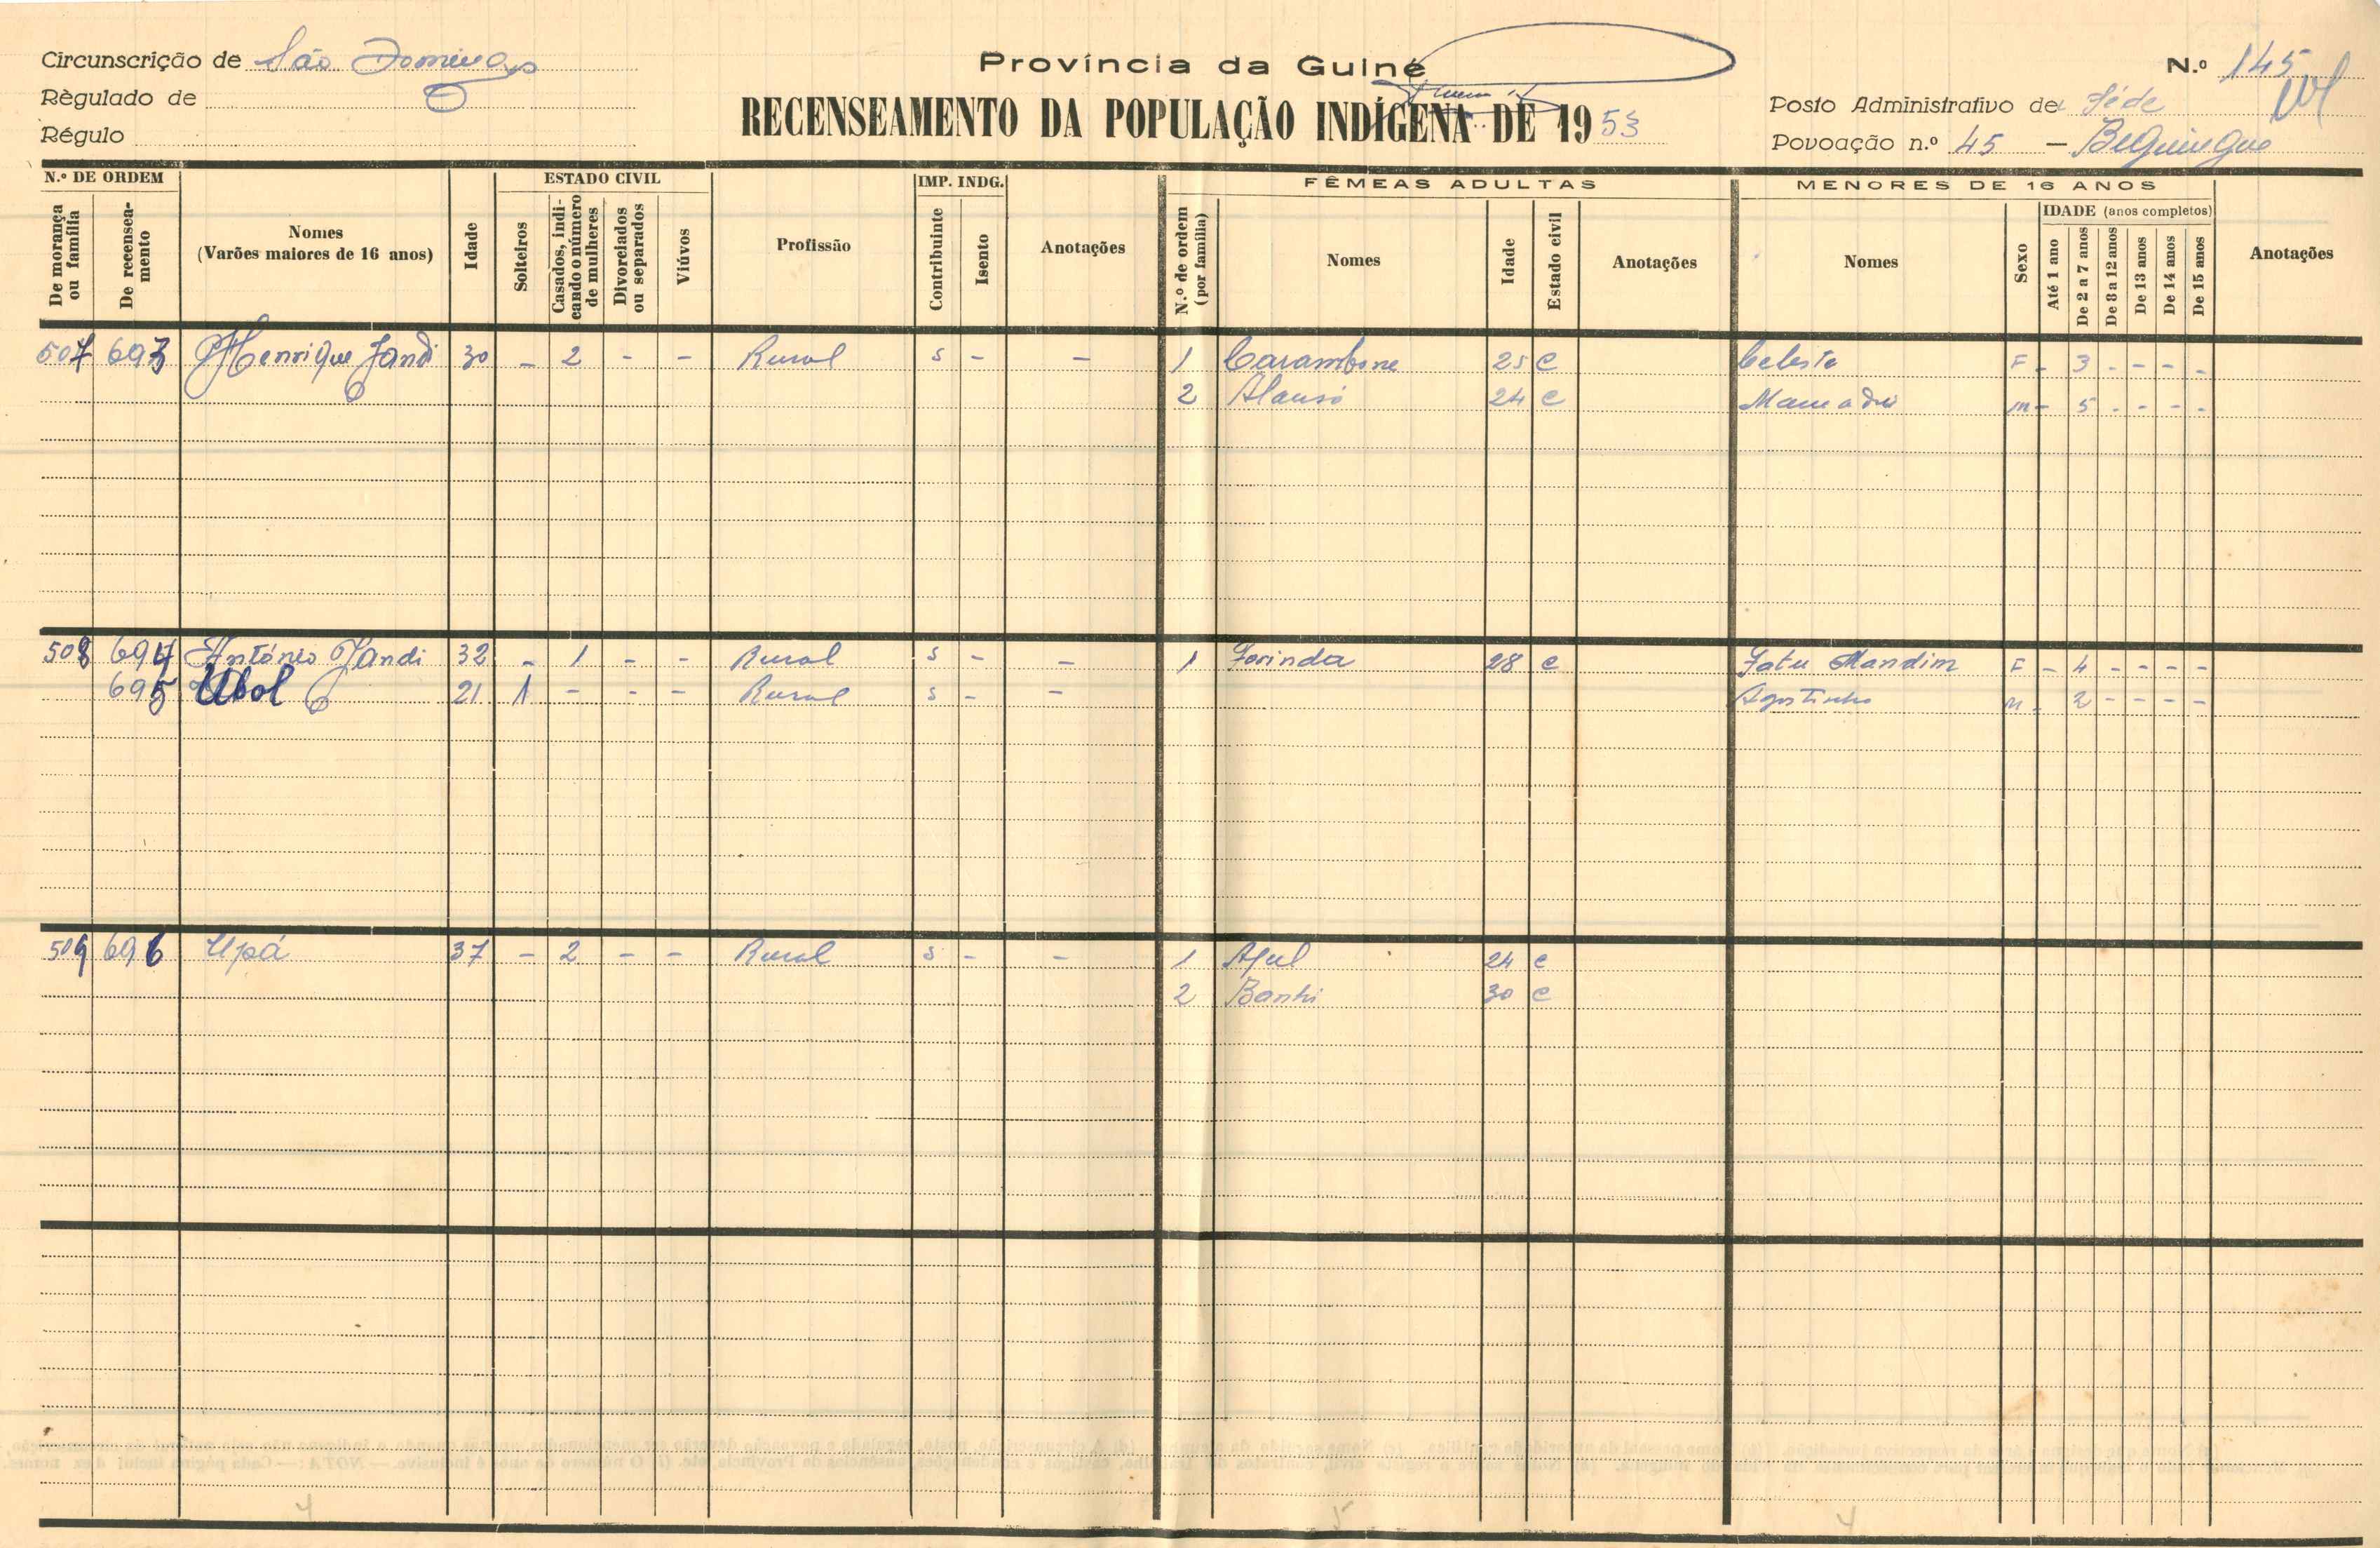 Circunscrição de São Domingos
Règulado de
Régulo
Província da Guiné
RECENSEAMENTO DA POPULAÇÃO INDÍGENA DE 1953
N.º 145
Posto Administrativo de Séde
Povoação n.º 45 — Beguingue
N.º DE ORDEM
De morança ou família
De recenseamento
Nomes
(Varões maiores de 16 anos)
Idade
ESTADO CIVIL
Solteiros
Casados, indicando o número de mulheres
Divorciados ou separados
Viúvos
Profissão
IMP. INDG.
Contribuinte
Isento
Anotações
FÊMEAS ADULTAS
N.º de ordem (por família)
Nomes
Idade
Estado civil
Anotações
MENORES DE 16 ANOS
Nomes
Sexo
IDADE (anos completos)
Até 1 ano
De 2 a 7 anos
De 8 a 12 anos
De 13 anos
De 14 anos
De 15 anos
Anotações
507 693 Henrique Jandi 30 - 2 - - Rural s - - 1 Carambone 25 C Celeste F - 3 - - - -
2 24 C Mamadú m - 5 - - - -
508 694 António Jandi 32 - 1 - - Rural s - - 1 Forinda 28 C Fatu Mandim F - 4 - - - -
695 Ubol 21 1 - - - Rural s - - Agostinho m - 2 - - - -
509 696 Upá 37 - 2 - - Rural s - - 1 Aful 24 C
2 Banhi 30 C
4 5 4